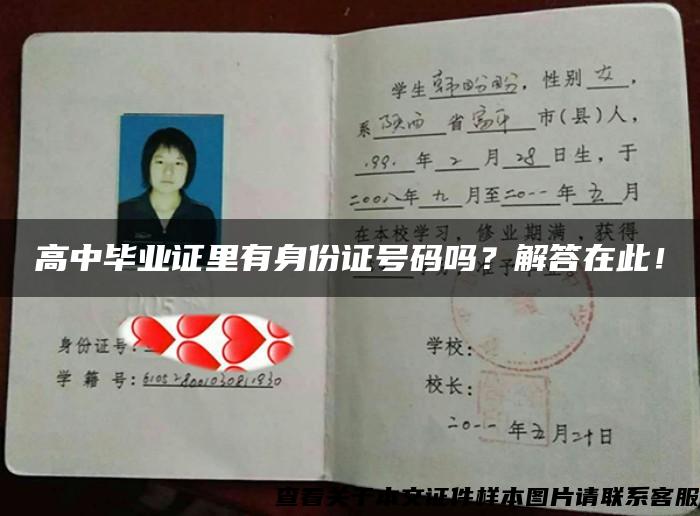 学生韩盼盼，性别女，
系陕西省富平市(县)人，
1991年2月28日生，于
二00八年九月至二0一一年五月
在本校学习，修业期满，获得
高中毕业证里有身份证号码吗？解答在此！
身份证号：
学籍号：
学校：
校长：
二0一一年五月二十日
查看关于本文证件样本图片请联系客服